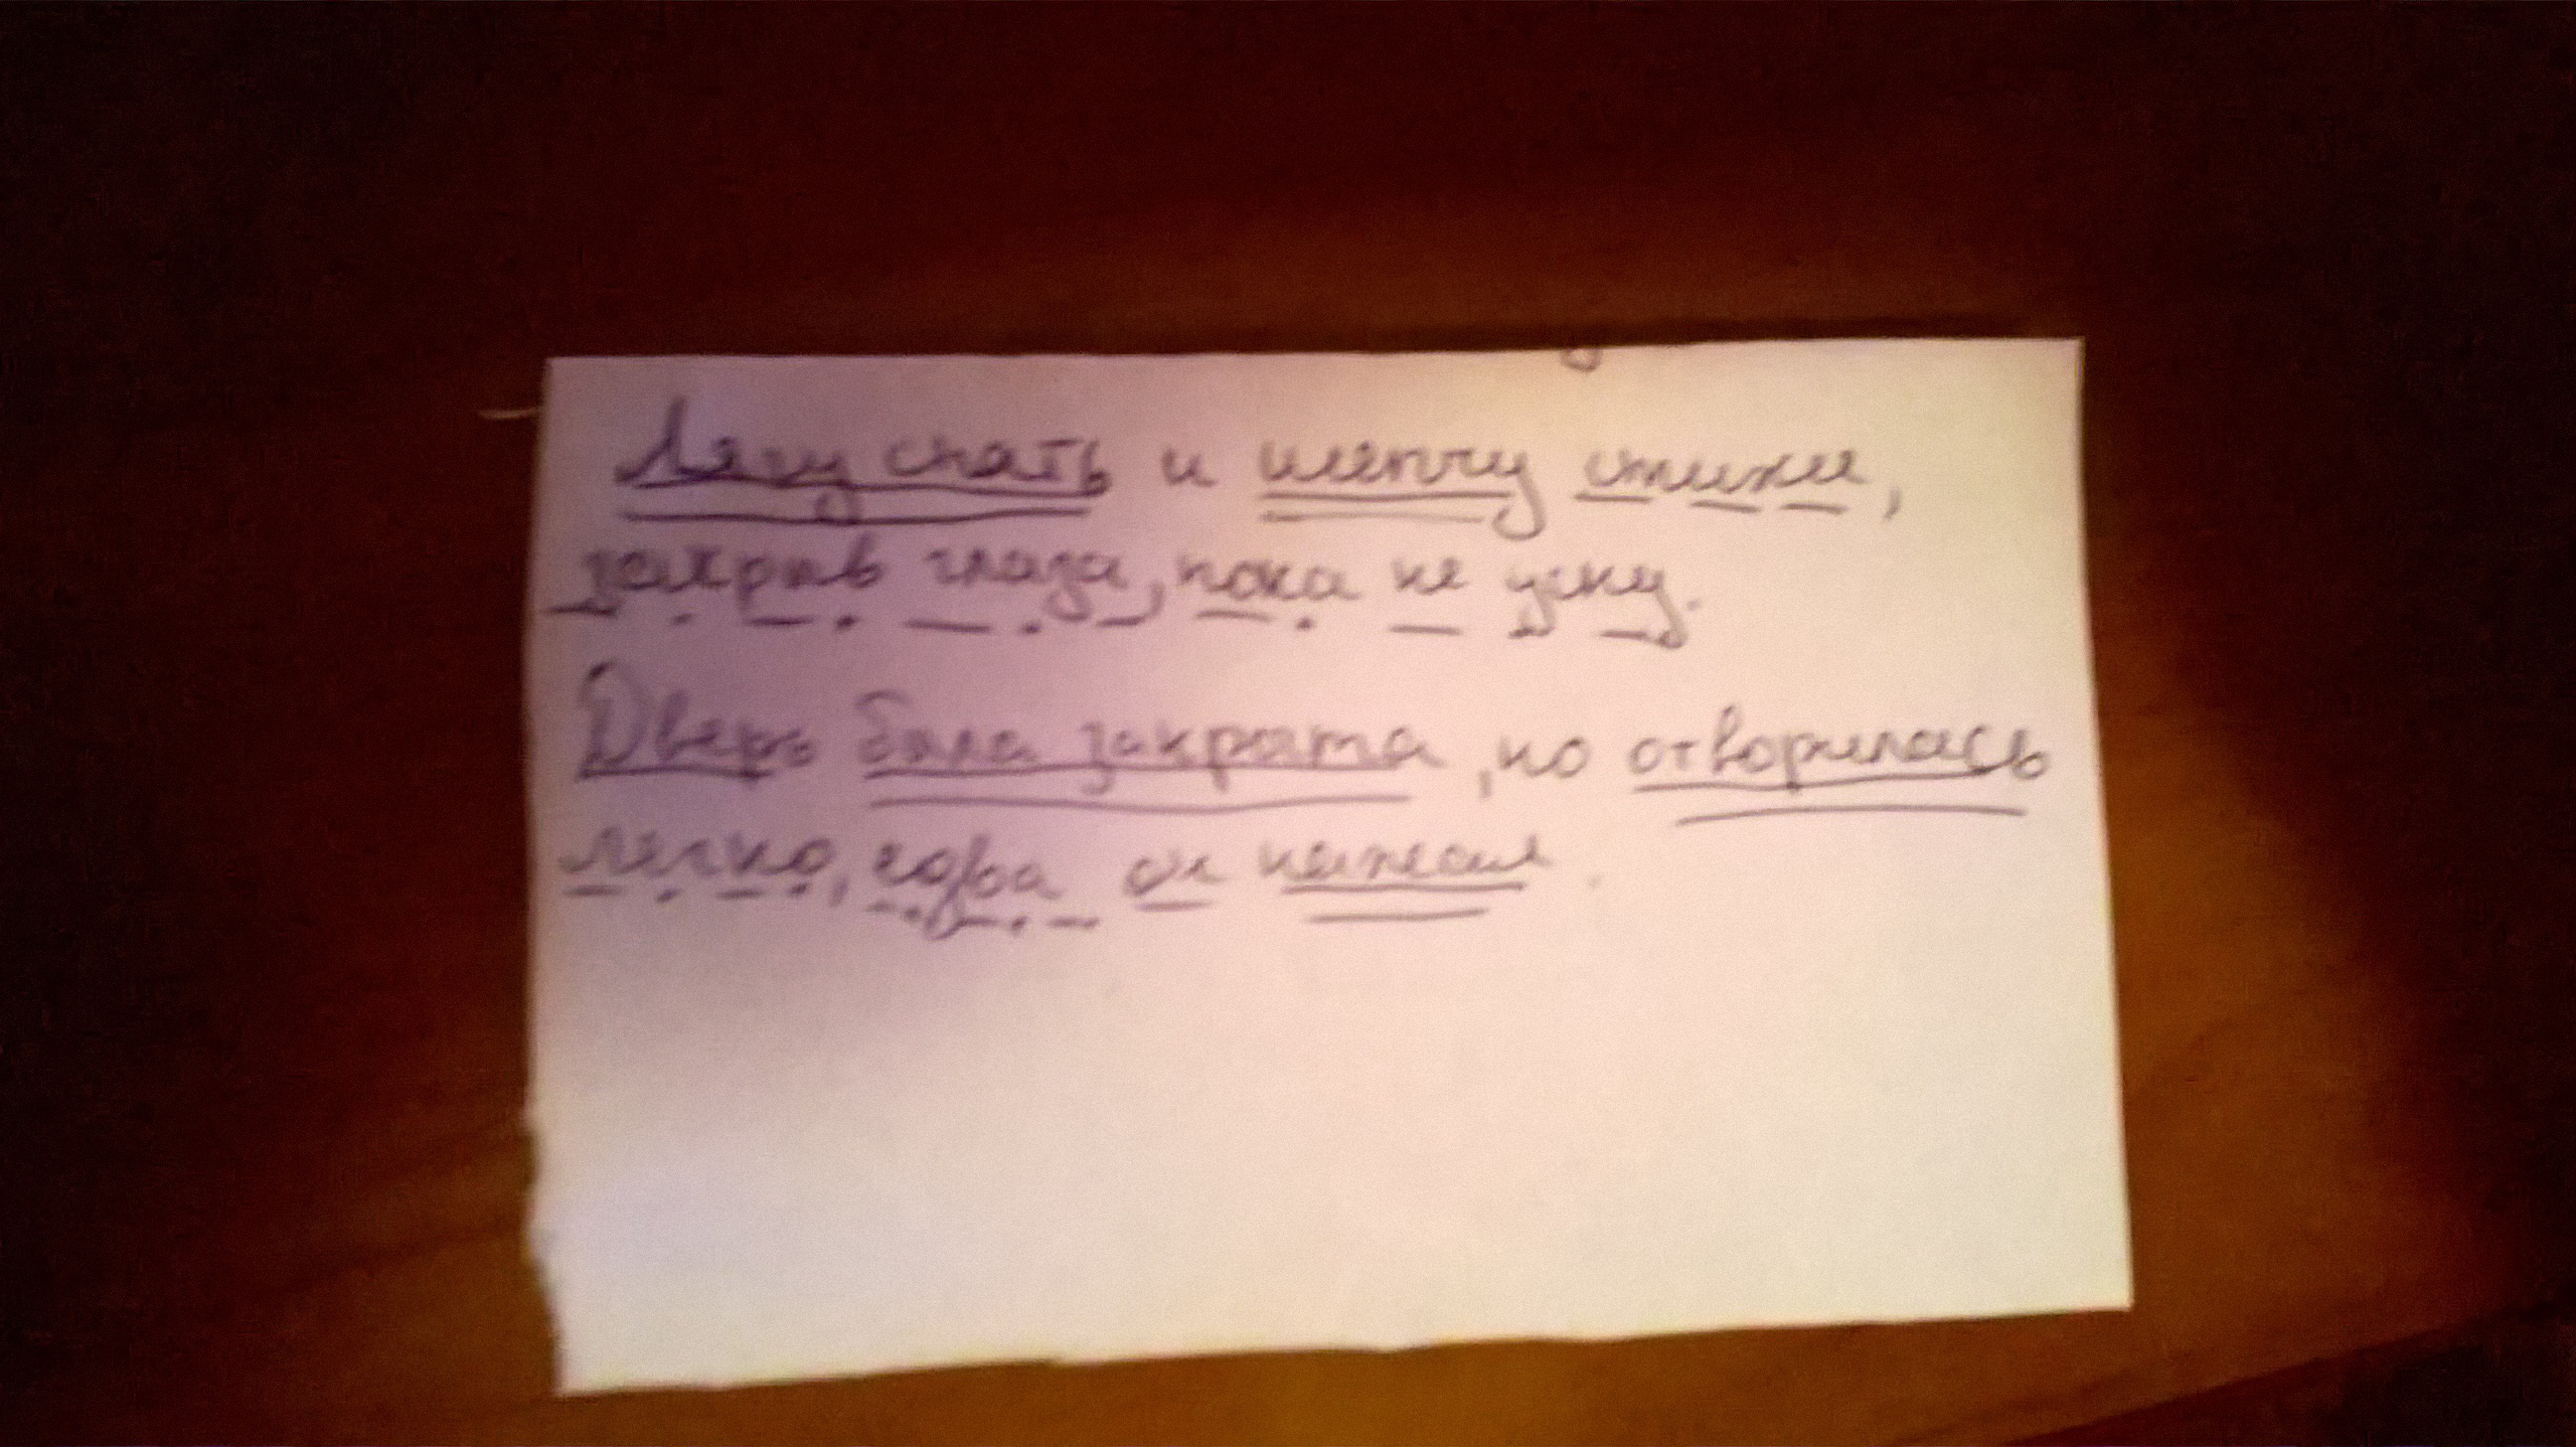 Лягу спать и шепчу стихи,
закрыв глаза, пока не усну.
Дверь была закрыта, но отворилась
легко, едва он нажал.